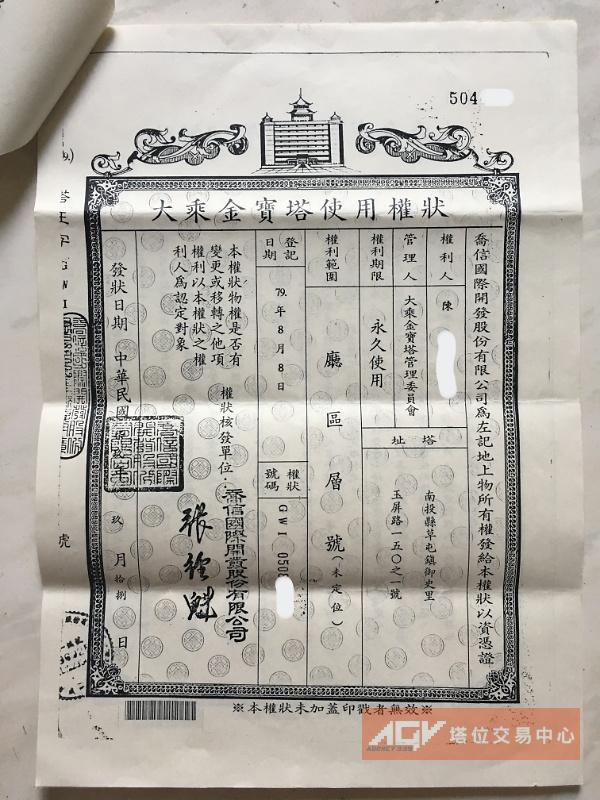 504
大乘金寶塔使用權狀
喬信國際開發股份有限公司為左記地上物所有權發給本權狀以資憑證
權利人
陳
管理人
大乘金寶塔管理委員會
塔址
南投縣草屯鎮御史里
玉屏路一五〇之一號
權利期限
永久使用
權利範圍
廳區層號(未定位)
登記日期
79.年8月8日
權狀號碼
GWI 050
本權狀物權是否有
變更或移轉之他項
權利以本權狀之權
利人為認定對象
權狀核發單位：喬信國際開發股份有限公司
發狀日期 中華民國
玖月拾捌日
號
※本權狀未加蓋印戳者無效※
AGV 塔位交易中心